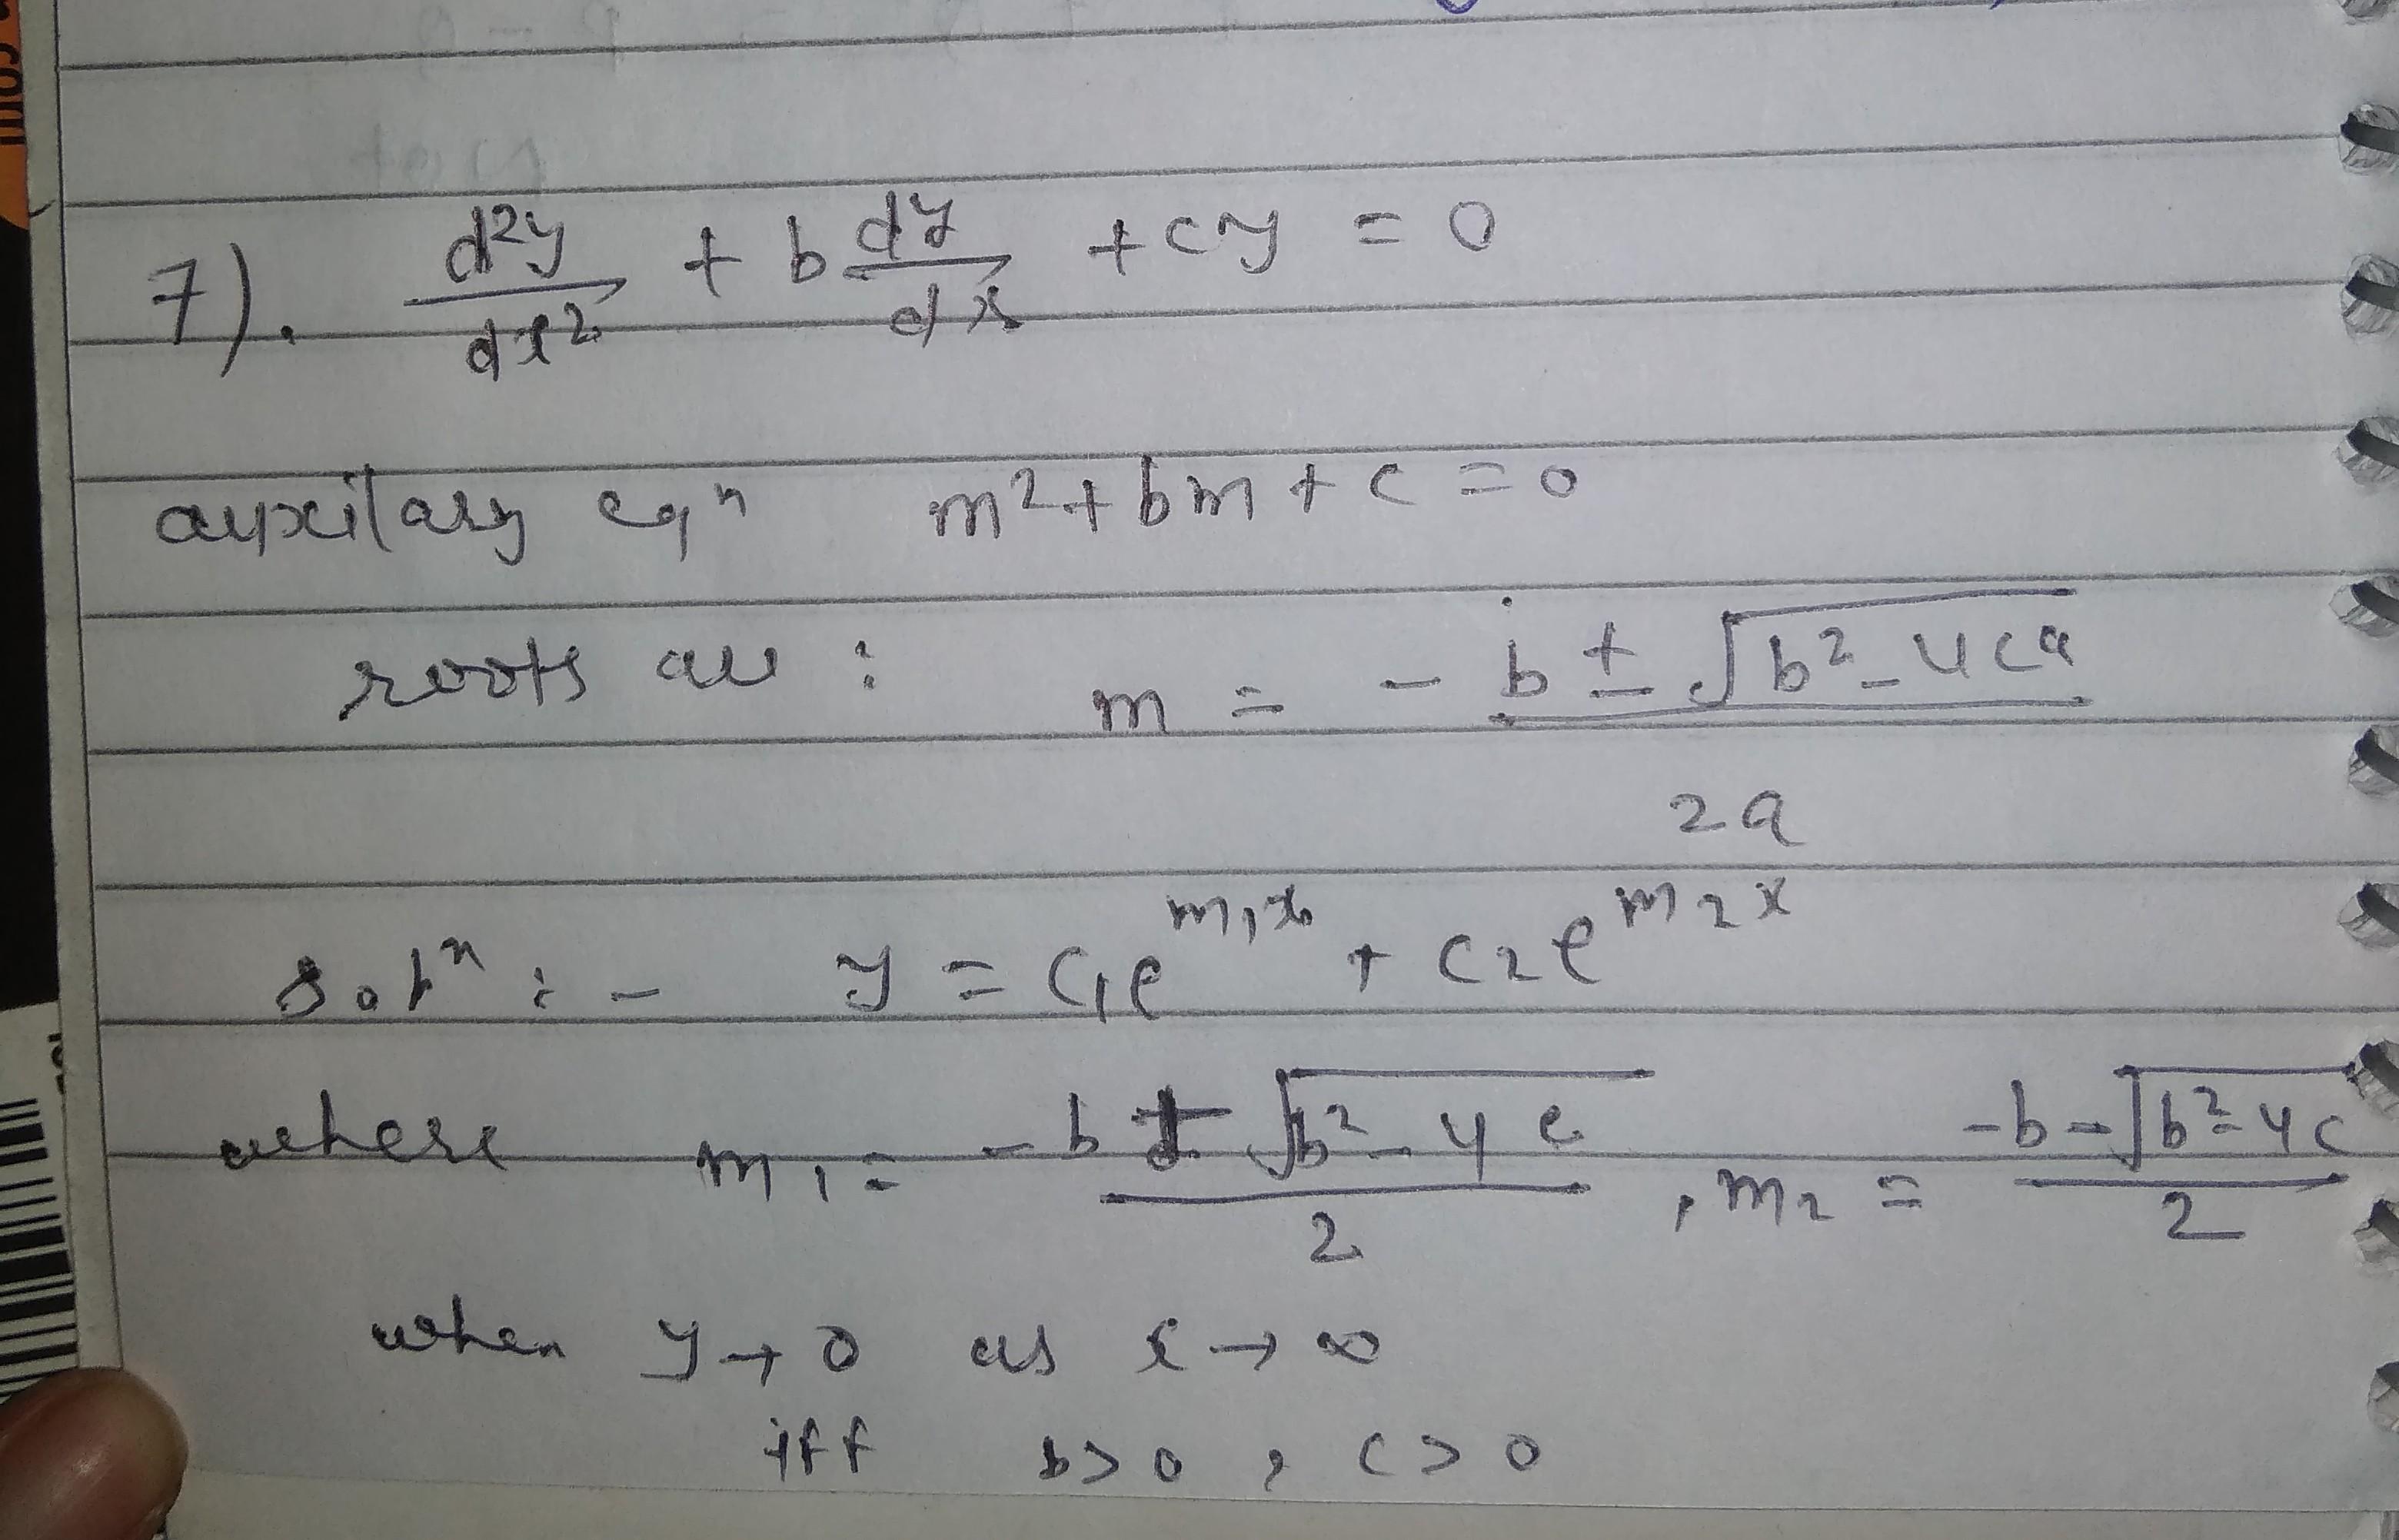 7). d²y/dx² + b dy/dx + cy = 0
auxilary eqⁿ m² + bm + c = 0
roots are : m = - b ± √b² - 4ca / 2a
solⁿ : - y = c₁e^m₁x + c₂e^m₂x
where m₁ = -b + √b² - 4c / 2 , m₂ = -b - √b² - 4c / 2
when y → 0 as x → ∞
iff b > 0 , c > 0